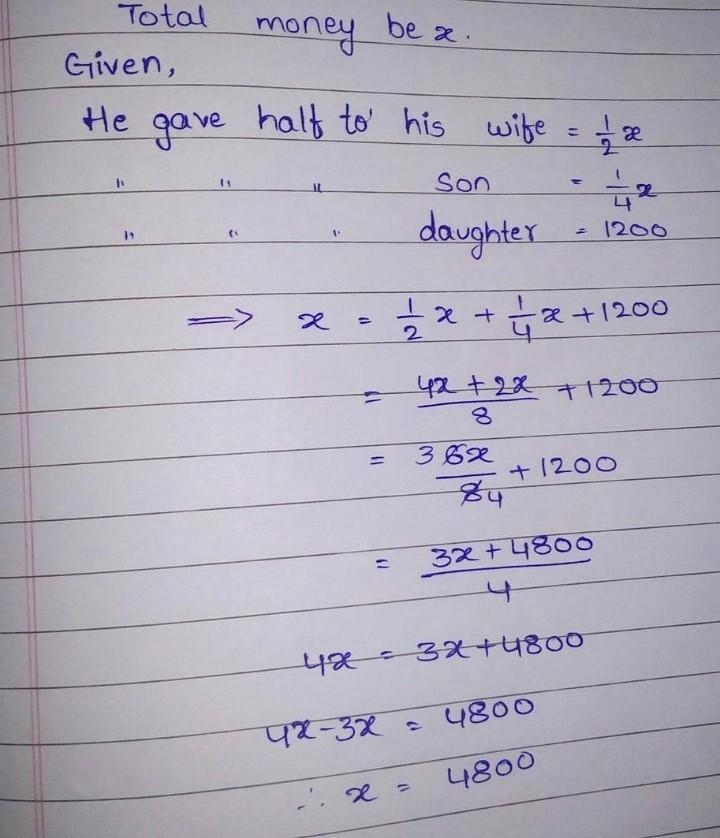 Total money be x.
Given,
He gave half to his wife = 1/2 x
" " " son = 1/4 x
" " " daughter = 1200
⟹ x = 1/2 x + 1/4 x + 1200
= (4x + 2x)/8 + 1200
= 3 6x/8 4 + 1200
= (3x + 4800)/4
4x = 3x + 4800
4x - 3x = 4800
∴ x = 4800